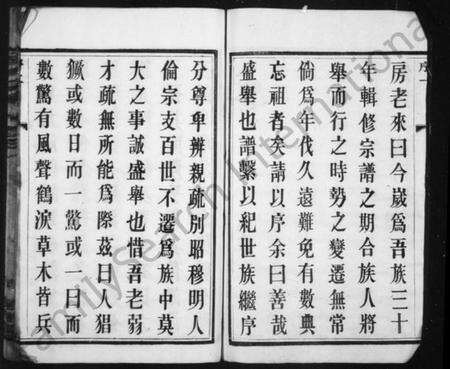 序一
房老來曰今歲爲吾族三十
年輯修宗譜之期合族人將
舉而行之時勢之變遷無常
倘爲年代久遠難免有數典
忘祖者矣請以序余曰善哉
盛舉也譜繫以紀世族繼序
分尊卑辨親疏別昭穆明人
倫宗支百世不遷爲族中莫
大之事誠盛舉也惜吾老弱
才疏無所能爲際茲日人猖
獗或數日而一驚或一日而
數驚有風聲鶴淚草木皆兵
FamilySearch International